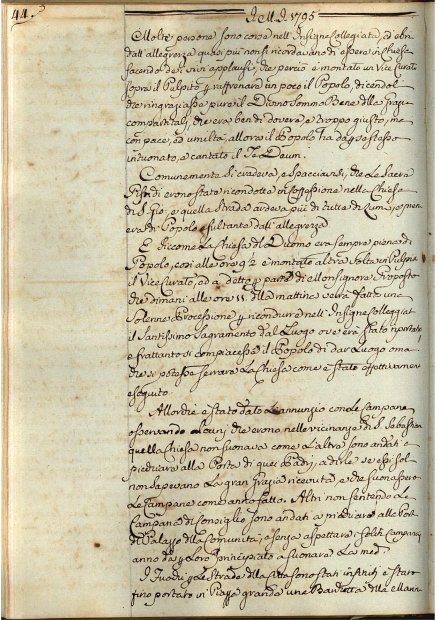 44.
J. M. J. 1795
Molte persone sono corse nell'Insigne Collegiata, ed ebri
dall'allegrezza quasi più non si ricordavano di essere in Chiesa
facendo de' vivi applausi, che perciò è montato un Vice Curato
sopra il Pulpito p raffrenare un poco il Popolo, dicendol
che ringraziasse pure il Divino Sommo Bene delle Grazie
compartiteli, che era ben di dovere, e troppo giusto, ma
con pace, ed umiltà, allora il Popolo ha da se stesso
intuonato, e cantato il Te Deum.
Comunemente si credeva, e spacciavasi, che le Sacre
Pissidi erono state ricondotte in Processione nella Chiesa
di S. Gio, e quella Strada ardeva più di tutte di Lumi, e
era di Popolo esultante dall'allegrezza
E siccome la Chiesa del Duomo era sempre piena di
Popolo, così alle ore 9 1/2 è montato altra volta in Pulpito
il Vice Curato, ed à detto p parte di Monsignore Proposto
che dimani alle ore 11 della mattina verrà fatto una
Solenne Processione p ricondurre nell'Insigne Collegiat
il Santissimo Sagramento dal Luogo ove era stato riportato
e frattanto si compiacesse il Popolo di dar Luogo oma
che si potesse serrare la Chiesa come è stato effettivamen
eseguito
Allorchè è stato dato l'annunzio con le Campane
osservando alcuni che erono nelle vicinanze di S. Sebastian
quella Chiesa non suonava come l'altre sono andati a
picchiare alla Porta di quei Padri, a dirle se essi sol
non sapevano la gran Grazia ricevuta, e che suonassero
le Campane come anno fatto. Altri non sentendo le
Campane di Consiglio sono andati a picchiare alla Port
di Palazzo della Comunità, e senza aspettare i soliti Campanai
anno da p Loro principiato a suonare la med.
I Fuochi p le Strade della Città sono stati infiniti, è stato
fino portato in Piazza grande una Baracca della